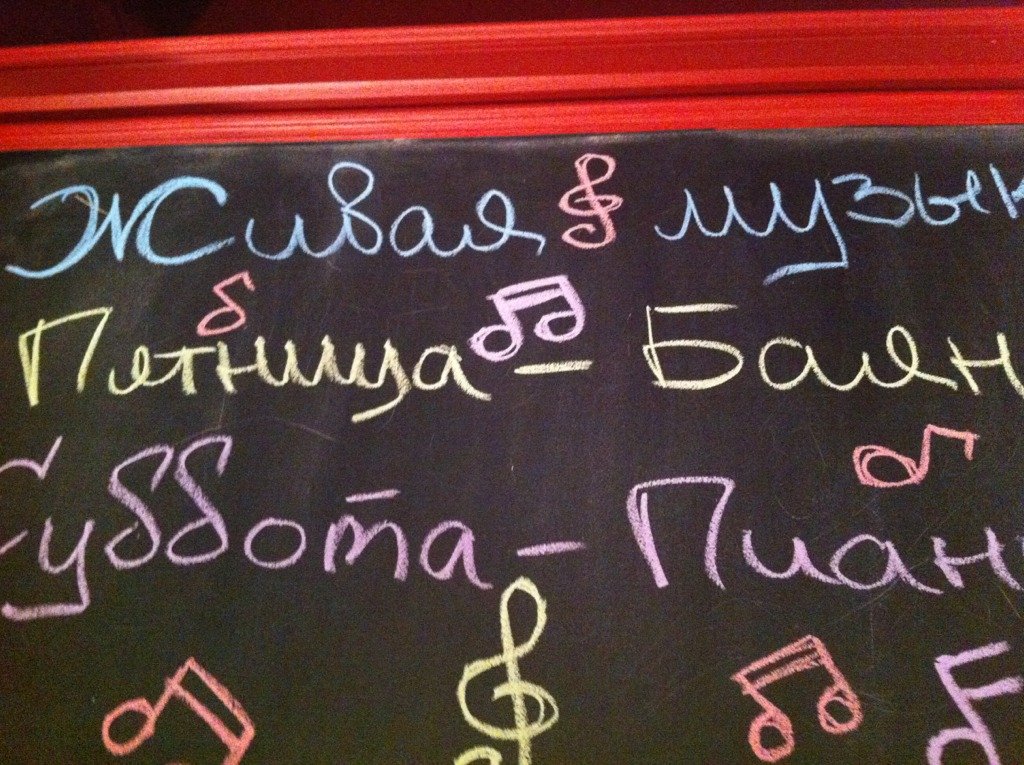 Живая музык
Пятница - Баян
Суббота - Пиан